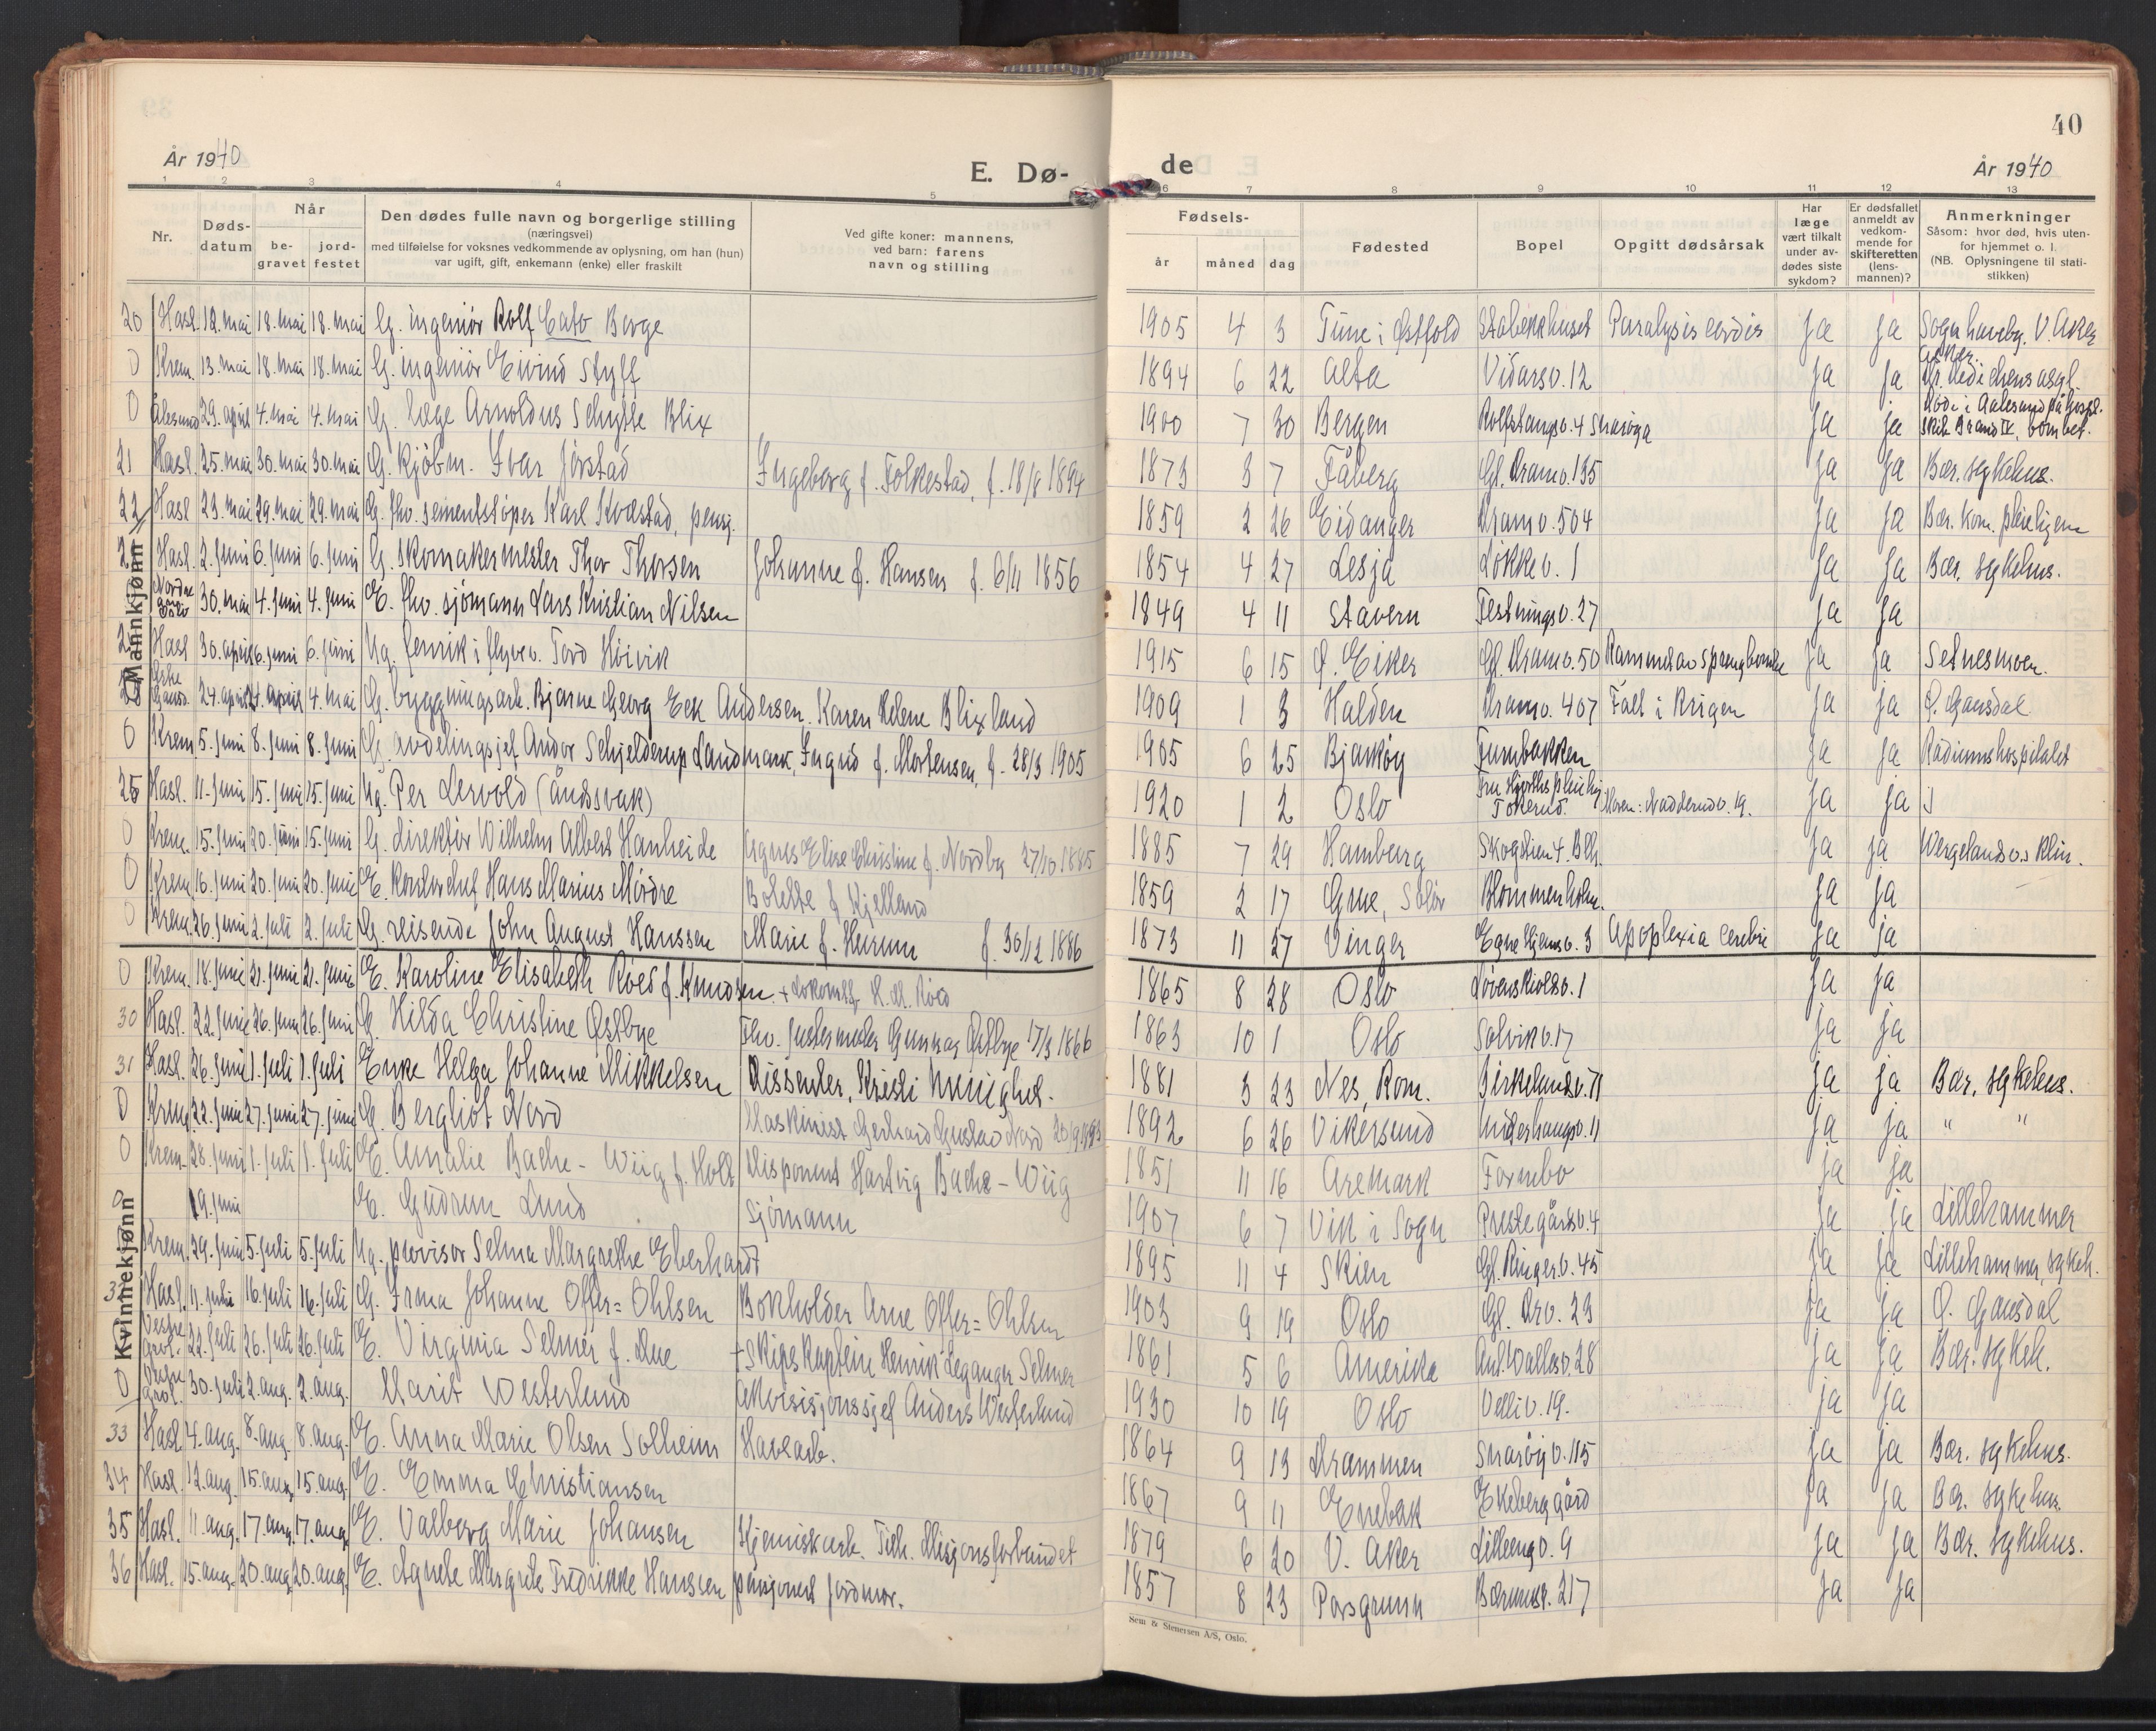 40
År 1940
E. Dø-
de
År 1940
1 2 3 4 5 6 7 8 9 10 11 12 13
Nr.
Døds-
datum
Når
be-
gravet
jord-
festet
Den dødes fulle navn og borgerlige stilling
(næringsvei)
med tilføielse for voksnes vedkommende av oplysning, om han (hun)
var ugift, gift, enkemann (enke) eller fraskilt
Ved gifte koner: mannens,
ved barn: farens
navn og stilling
Fødsels-
år måned dag
Fødested
Bopel
Opgitt dødsårsak
Har
læge
vært tilkalt
under av-
dødes siste
sykdom?
Er dødsfallet
anmeldt av
vedkom-
mende for
skifteretten
(lens-
mannen)?
Anmerkninger
Såsom: hvor død, hvis uten-
for hjemmet o. l.
(NB. Oplysningene til stati-
stikken)
Mannkjønn
20 Hasl. 12. mai 18. mai 18. mai G. ingeniør Rolf Cato Borge 1905 4 3 Tune i Østfold Stabekkhuset Paralysis cordis ja ja Sogn haveby. V. Aker
0 Krem. 13. mai 18. mai 18. mai G. ingeniør Eivind Styff 1894 6 22 Alta Vidarsv. 12 ja ja
0 Ålesund 29. april 4. mai 4. mai G. læge Arnoldus Schytte Blix 1900 7 30 Bergen Rolfstangv. 4 Snarøya ja ja Død i Aalesund på hospl.
21 Hasl. 25. mai 30. mai 30. mai G. kjøbm. Ivar Jørstad Ingeborg f. Folkestad, f. 18/8 1894 1873 3 7 Fåberg Gl. Dramv. 135 ja ja Bær. sykehus.
22 Hasl. 23. mai 29. mai 29. mai G. fhv. sementstøper Karl Kvæstad, pensj. 1859 2 26 Eidanger Dramv. 504 ja ja Bær. kom. pleiehjem
Hasl. 2. juni 6. juni 6. juni G. skomakermester Thor Thorsen Johanne f. Hansen f. 6/11 1856 1854 4 27 Lesja Løkkev. 1 ja ja Bær. sykehus.
30. mai 4. juni 4. juni E. fhv. sjømann Lars Kristian Nilsen 1849 4 11 Stavern Festningsv. 27 ja ja
Hasl. 30. april 6. juni 6. juni Ug. fenrik i flyvev. Tord Høivik 1915 6 15 Ø. Eiker Gl. Dramv. 50 Rammet av sprengbombe ja ja Setnesmoen.
24. april 27. april 4. mai G. bygningsark. Bjarne Georg Eck Andersen. Karen Helene Blixland 1909 1 3 Halden Dramv. 407 Falt i krigen ja ja Ø. Gausdal
0 Krem. 5. juni 8. juni 8. juni G. avdelingsjef Andor Schjelderup Landmark, Ingrid f. Mortensen, f. 28/3 1905 1905 6 25 Bjarkøy Furubakken ja ja Radiumshospitalet
25 Hasl. 11. juni 15. juni 15. juni Ug. Per Lervold (åndssvak) 1920 1 2 Oslo Fru Hjorths pleiehj. Tokerud. Moren: Nadderudv. 19. ja ja
0 Krem. 15. juni 20. juni 15. juni G. direktør Wilhelm Albert Hanheide Agnes Elise Christine f. Nordby 27/10 1885 1885 7 29 Hamburg Skogstien 4. Blh. ja ja Wergelandsv.s klin.
0 Krem. 16. juni 20. juni 20. juni E. kontorchef Hans Marius Mørdre Bolette f. Kjelland 1859 2 17 Grue, Solør Blommenholm. ja ja
0 Krem. 26. juni 2. juli 2. juli G. reisende John August Hanssen Marie f. Hurum f. 30/12 1886 1873 11 27 Vinger Egne Hjemsv. 3 Apoplexia Cerebri ja ja
Kvinnekjønn
0 Krem. 18. juni 21. juni 21. juni E. Karoline Elisabeth Röed f. Knudsen + Lokomtf. K. M. Röed 1865 8 28 Oslo Løvenskioldsv. 1 ja ja
30 Hasl. 22. juni 26. juni 26. juni G. Hilda Christine Østbye Fhv. Gunnar Østbye 17/3 1866 1863 10 1 Oslo Solvikv. 17 ja ja
31 Hasl. 26. juni 1. juli 1. juli Enke Helga Johanne Mikkelsen Dissenter, Kristi menighet. 1881 3 23 Nes, Rom. Birkelundv. 71 ja ja Bær. sykehus.
0 Krem. 22. juni 27. juni 27. juni G. Bergliot Nord Maskinist Gerhard Gustav Nord 1892 6 26 Vikersund Underhaugsv. 11 ja ja " "
0 Krem. 28. juni 1. juli 1. juli E. Amalie Bache-Wiig f. Holt Disponent Hartvig Bache-Wiig 1851 11 16 Aremark Fornebo ja ja
0 19. juni E. Gudrun Lund Sjømann 1907 6 7 Vik i Sogn Prestegårdsv. 4 ja ja Lillehammer
Krem. 29. juni 5. juli 5. juli Ug. provisor Selma Margrethe Eberhardt 1895 11 4 Skien Gl. Ringer.v. 45 ja ja Lillehammer, sykeh.
32 Hasl. 11. juli 16. juli 16. juli G. Irma Johanne Offer-Ohlsen Bokholder Arne Offer-Ohlsen 1903 9 19 Oslo Gl. Drv. 23 ja ja Ø. Gausdal
Vestre grav. 22. juli 26. juli 26. juli E. Virginia Selmer f. Due + Skipskaptein Henrik Leganger Selmer 1861 5 6 Amerika Ant. Wallesv. 28 ja ja Bær. sykeh.
0 Vestre grav. 30. juli 2. aug. 2. aug. Marit Westerlund Akvisisjonssjef Anders Westerlund 1930 10 19 Oslo Velliv. 19. ja ja
33 Hasl. 4. aug. 8. aug. 8. aug. E. Anna Marie Olsen Solheim Havearb. 1864 9 13 Drammen Snarøyv. 115 ja ja Bær. sykehus.
34 Hasl. 12. aug. 15. aug. 15. aug. E. Emma Christiansen 1867 9 11 Enebak Ekeberg gård ja ja Bær. sykehus.
35 Hasl. 11. aug. 17. aug. 17. aug. E. Valborg Marie Johansen Kjemiskarb. Tilh. Misjonsforbundet 1879 6 20 V. Aker Lilleengv. 9 ja ja Bær. sykehus.
36 Hasl. 15. aug. 20. aug. 20. aug. E. Agnete Margrete Fredrikke Hanssen pensjonert jordmor. 1857 8 23 Porsgrunn Bærumsv. 217 ja ja
Sem & Stenersen A/S, Oslo.